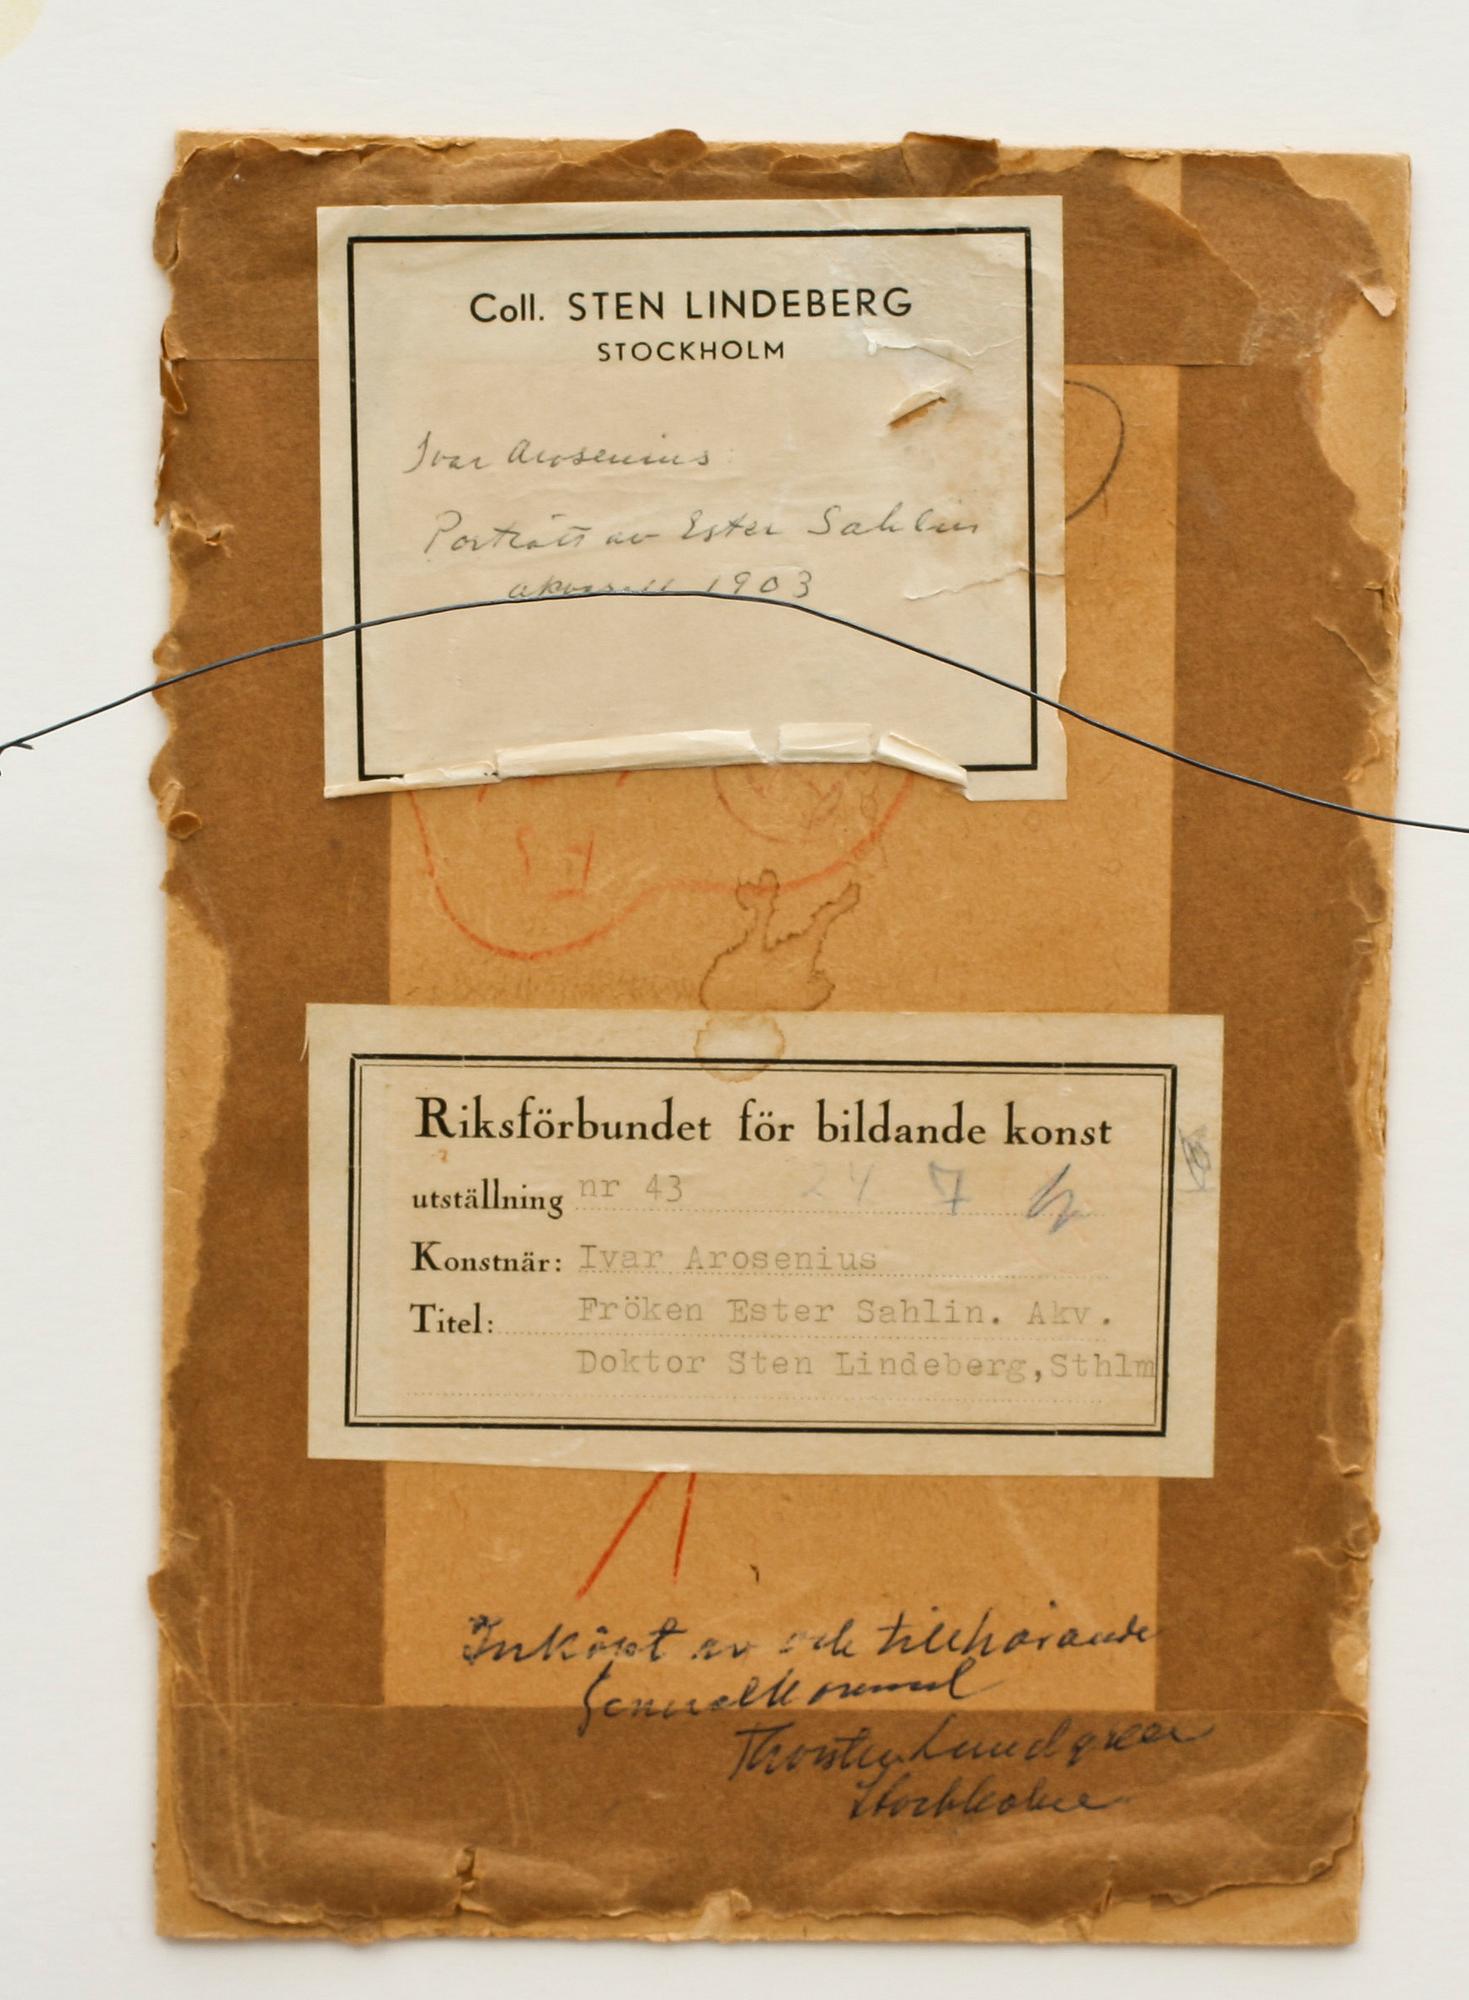 Coll. STEN LINDEBERG
STOCKHOLM
Ivar Arosenius
Porträtt av Ester Sahlin
akvarell 1903
Riksförbundet för bildande konst
utställning nr 43 24 7
Konstnär: Ivar Arosenius
Titel: Fröken Ester Sahlin. Akv.
Doktor Sten Lindeberg,Sthlm
Inköpt av och tillhörande
Generalkonsul
Thorsten Lundgren
Stockholm